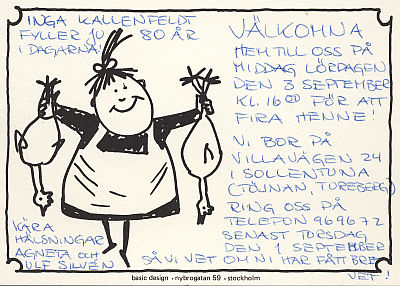 INGA KALLENFELDT
FYLLER JU 80 ÅR
I DAGARNA!
VÄLKOMNA
HEM TILL OSS PÅ
MIDDAG LÖRDAGEN
DEN 3 SEPTEMBER
KL. 16 00 FÖR ATT
FIRA HENNE!
VI BOR PÅ
VILLAVÄGEN 24
I SOLLENTUNA
(TÖJNAN, TUREBERG)
RING OSS PÅ
TELEFON 969672
SENAST TORSDAG
DEN 1 SEPTEMBER
SÅ VI VET OM NI HAR FÅTT BRE
VET!
KÄRA
HÄLSNINGAR
AGNETA OCH
ULF SILVÉN
basic design - nybrogatan 59 - stockholm